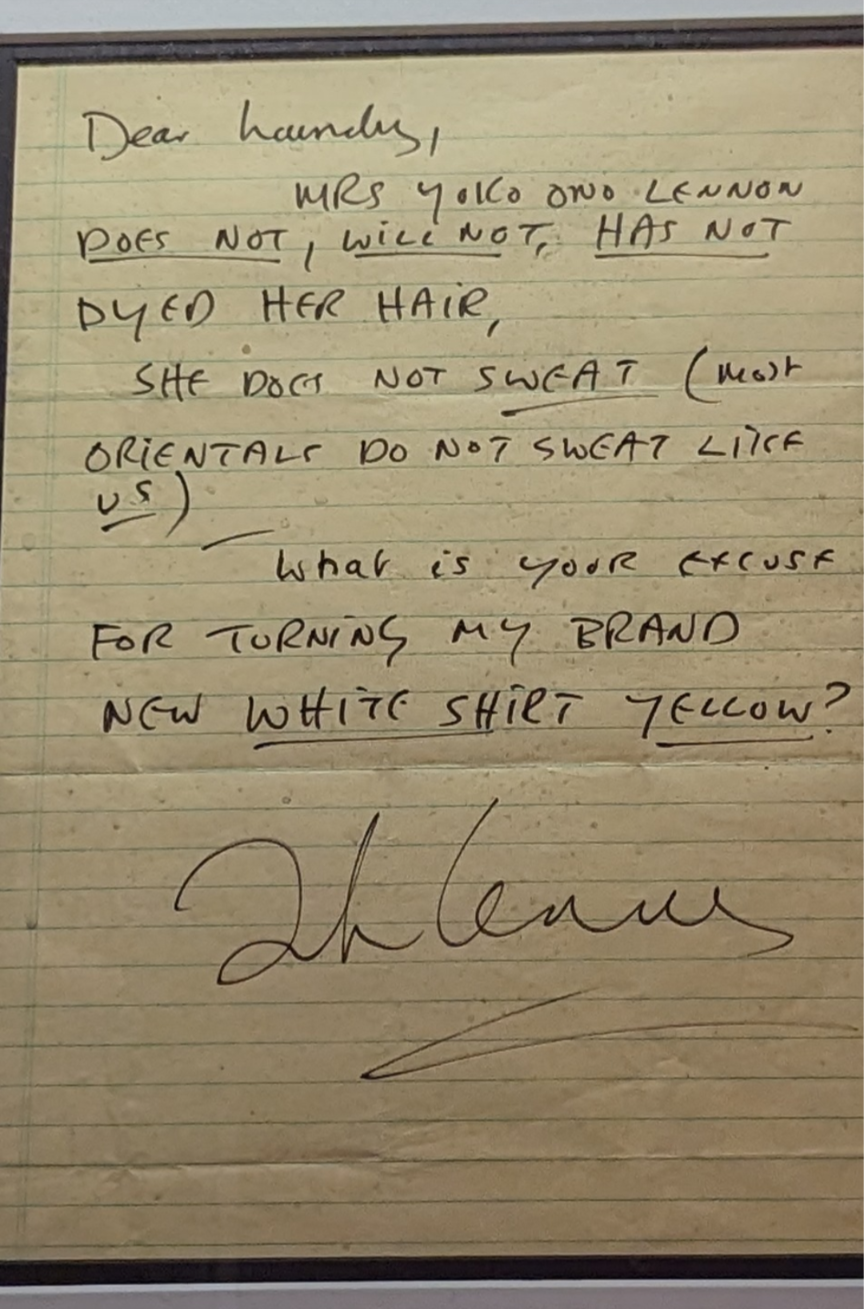 Dear Laundry,
MRS YOKO ONO LENNON
DOES NOT, WILL NOT, HAS NOT
DYED HER HAIR,
SHE DOES NOT SWEAT (most
ORIENTALS DO NOT SWEAT LIKE
US)
What is your EXCUSE
FOR TURNING MY BRAND
NEW WHITE SHIRT YELLOW?
John Lennon